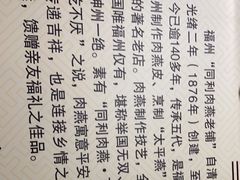 福州“同利肉燕老铺”自清
光绪二年（1876年）创建，至
今已逾140多年，传承五代，是福
州制作肉燕皮、烹制“太平燕”
的著名老店。肉燕制作技艺，全
国唯福州仅有，堪称举国无双、
神州一绝。素有“同利肉燕，
吃不厌”之说，肉燕寓意平安
传递吉祥，也是连接乡情之
，馈赠亲友福礼之佳品。